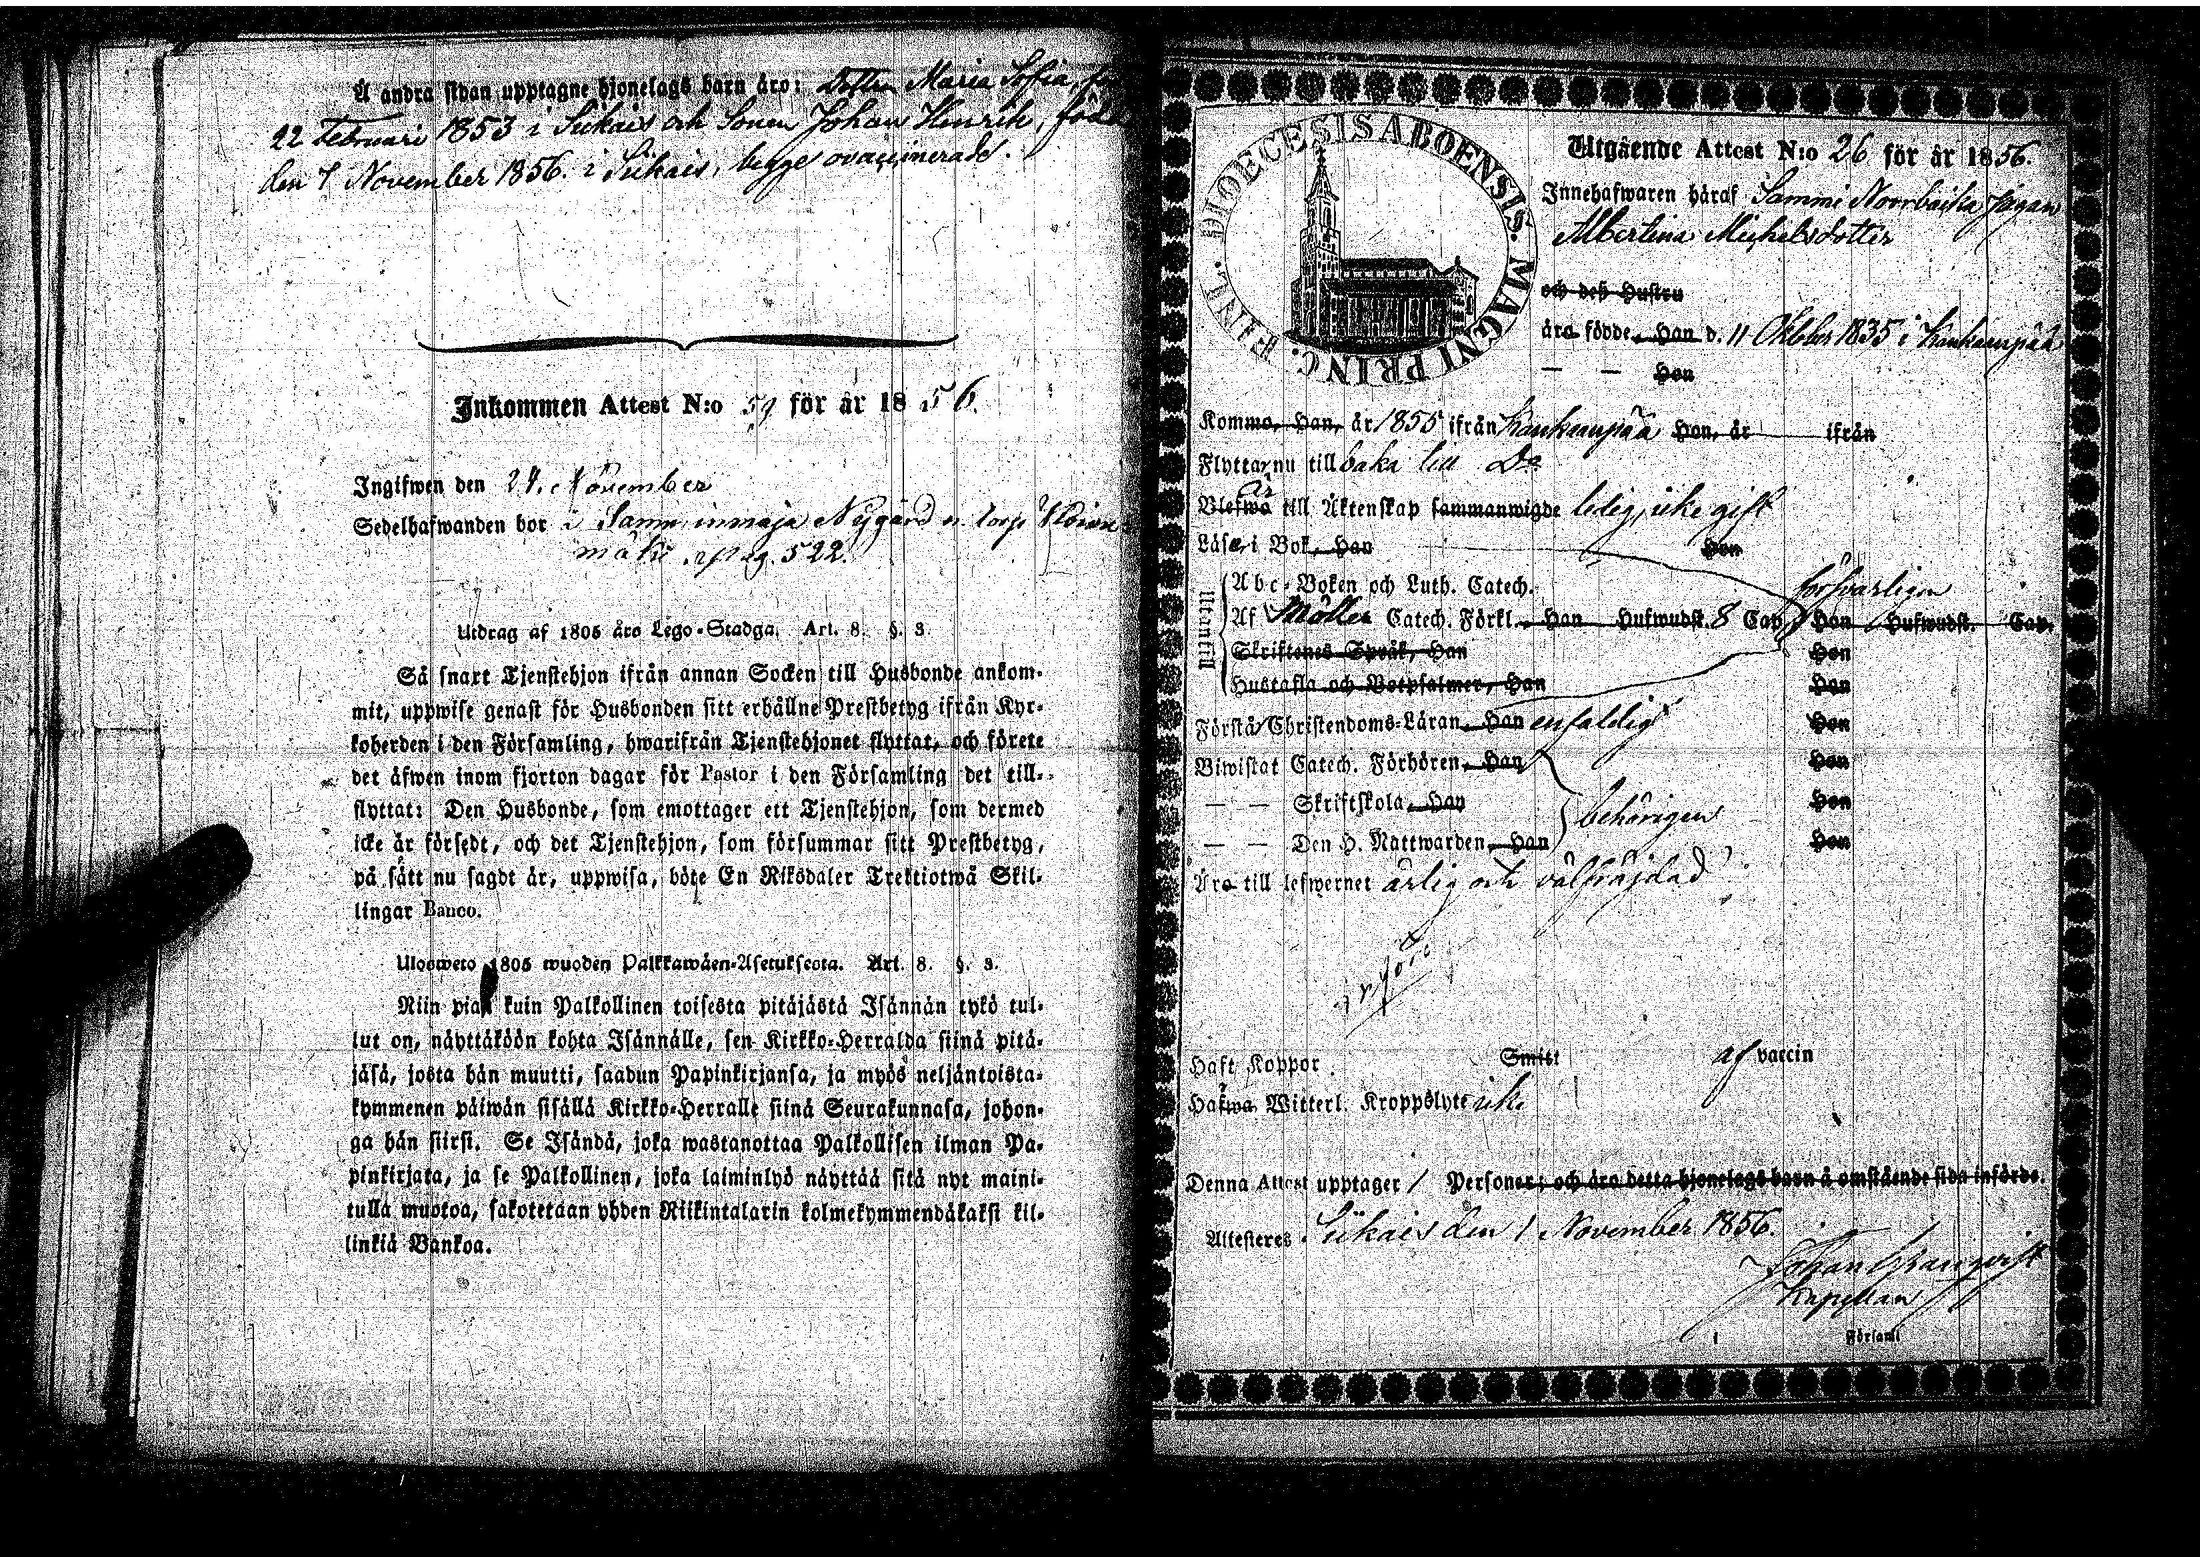 Å andra sidan upptagne hjonelags barn äro: Dottren Maria Sofia,
22 Februari 1853 i Siikais och Sonen Johan Henrik, född
den 7 November 1856. i Siikais, begge ovaccinerade.
Inkommen Attest N:o 59 för år 1856.
Ingifwen den 24. November
Sedelhafwanden bor i Nygård n. torp
mäki. pag. 522.
Utdrag af 1805 års Lego-Stadga. Art. 8. §. 3.
Så snart Tjenstehjon ifrån annan Socken till Husbonde ankom-
mit, uppwise genast för Husbonden sitt erhållne Prestbetyg ifrån Kyr-
koherden i den Församling, hwarifrån Tjenstehjonet flyttat, och förete
det äfwen inom fjorton dagar för Pastor i den Församling det till-
flyttat: Den Husbonde, som emottager ett Tjenstehjon, som dermed
icke är försedt, och det Tjenstehjon, som försummar sitt Prestbetyg,
på sätt nu sagdt är, uppwisa, böte En Riksdaler Trettiotwå Skil-
lingar Banco.
Ulosweto 1805 wuoden Palkkawäen-Asetuksesta. Art. 8. §. 3.
Niin pian kuin Palkollinen toisesta pitäjästä Isännän tykö tul-
lut on, näyttäköön kohta Isännälle, sen Kirkko-Herralda siinä pitä-
jäsä, josta hän muutti, saadun Papinkirjansa, ja myös neljäntoista-
kymmenen päiwän sisällä Kirkko-Herralle siinä Seurakunnasa, johon-
ga hän siirsi. Se Isändä, joka wastanottaa Palkollisen ilman Pa-
pinkirjata, ja se Palkollinen, joka laiminlyö näyttää sitä nyt maini-
tulla muotoa, sakotetaan yhden Riikintalarin kolmekymmendäkaksi kil-
linkiä Bankoa.
DIOECESIS ABOENSIS. MAGNI PRINC. FINL.
Utgående Attest N:o 26 för år 1856.
Innehafwaren häraf Sammi Norrbacka pigan
Albertina Michelsdotter
och deß Hustru
äro födde, Han d. 11 Oktober 1835 i Kankaanpää
— — Hon
Kommo, Han, år 1855 ifrån Kankaanpää Hon, år ifrån
Flyttar nu tillbaka till Do
är
Blefwo till Äktenskap sammanwigde ledig, icke gift
Läser i Bok, Han Hon
Utantill
Abc-Boken och Luth. Catech. försvarligen
Af Möller Catech. Förkl. Han Hufwudst. 8 Cap. Hon Hufwudst. Cap.
Skriftenes Språk, Han Hon
Hustafla och Botpsalmer, Han Hon
Förstå Christendoms-Läran, Han enfaldigt Hon
Biwistat Catech. Förhören, Han Hon
— — Skriftskola, Han behörigen Hon
— — Den H. Nattwarden, Han Hon
Äro till lefwernet ärlig och välfräjdad
Haft Koppor Smitt af vaccin
Hafwa Witterl. Kroppslyte icke
Denna Attest upptager 1 Personer; och äro detta hjonelags barn å omstående sida införde.
Attesteres Siikais den 1 November 1856.
Johan Granqvist
Kapellan
i Församl